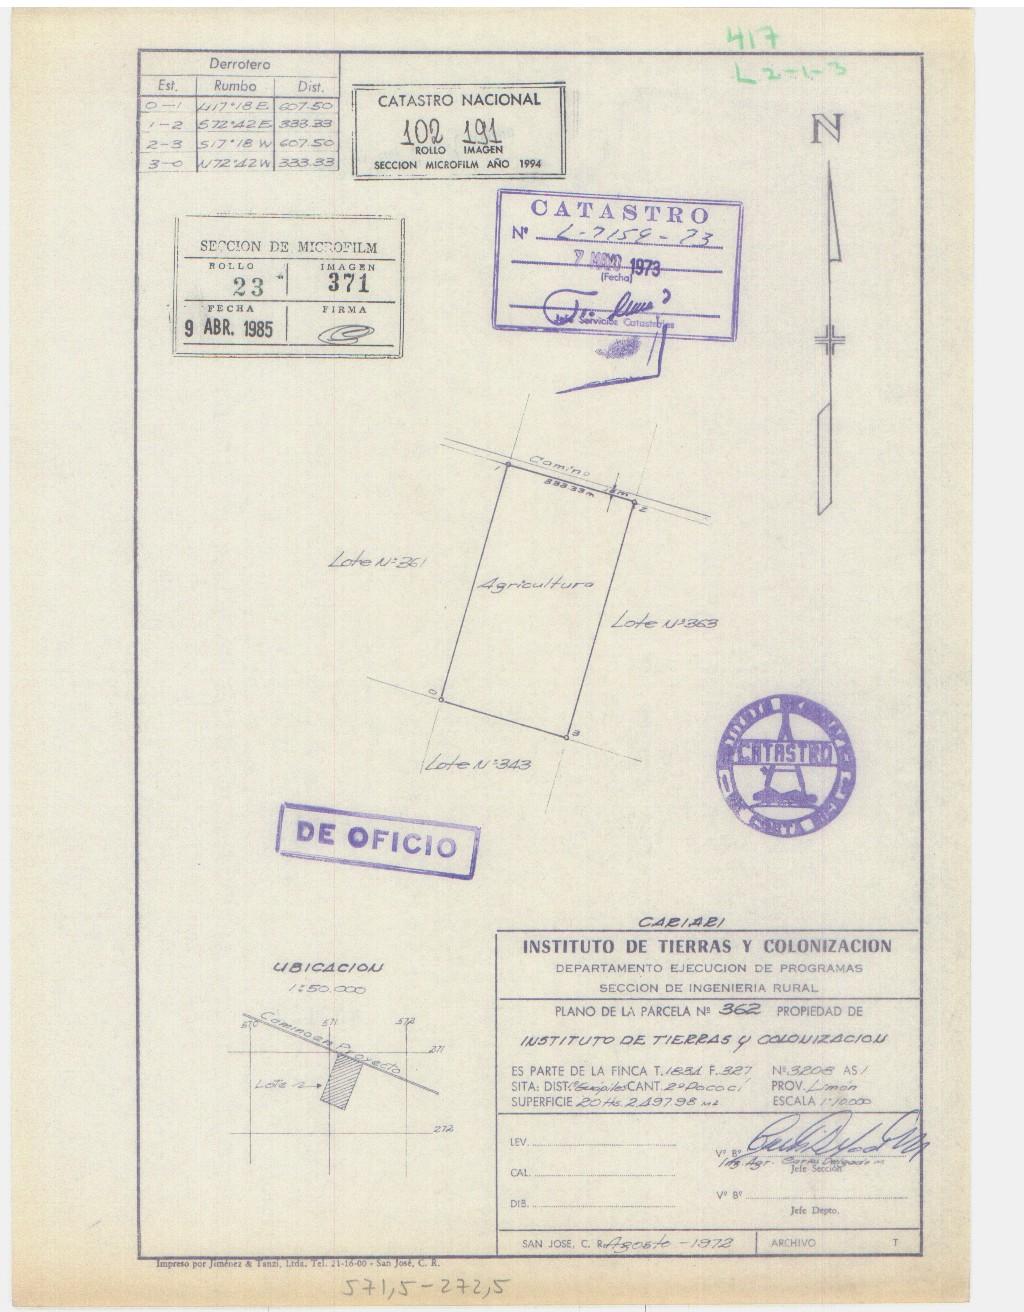 417
L2-1-3
Derrotero
Est. Rumbo Dist.
0-1 N17°18E 607.50
1-2 S72°42E 333.33
2-3 S17°18W 607.50
3-0 N72°42W 333.33
CATASTRO NACIONAL
102 191
ROLLO IMAGEN
SECCION MICROFILM AÑO 1994
N
SECCION DE MICROFILM
ROLLO IMAGEN
23 371
FECHA FIRMA
9 ABR. 1985
CATASTRO
Nº L-7159-73
7 MAYO 1973
(Fecha)
Jefe Servicios Catastrales
Camino
1
333.33m
2
Lote Nº361
Agricultura
Lote Nº363
0
3
Lote Nº343
CATASTRO
DE COSTA RICA
DE OFICIO
CARIARI
INSTITUTO DE TIERRAS Y COLONIZACION
DEPARTAMENTO EJECUCION DE PROGRAMAS
SECCION DE INGENIERIA RURAL
PLANO DE LA PARCELA Nº 362 PROPIEDAD DE
INSTITUTO DE TIERRAS Y COLONIZACION
ES PARTE DE LA FINCA T.1831 F.327 Nº.3208 AS1
SITA: DIST.1ºGuápiles CANT. 2ºPococí PROV. Limón
SUPERFICIE 20Hs.2.497.98 m2 ESCALA 1:10.000
LEV.
Vº Bº
Ing. Agr. Carlos Delgado M
Jefe Sección
CAL.
DIB.
Vº Bº
Jefe Depto.
SAN JOSE, C. R. Agosto-1972 ARCHIVO T
UBICACION
1:50.000
570 571 572
Camino en Proyecto
271
Lote
272
Impreso por Jiménez & Tanzi, Ltda. Tel. 21-16-00 - San José, C. R.
571,5-272,5